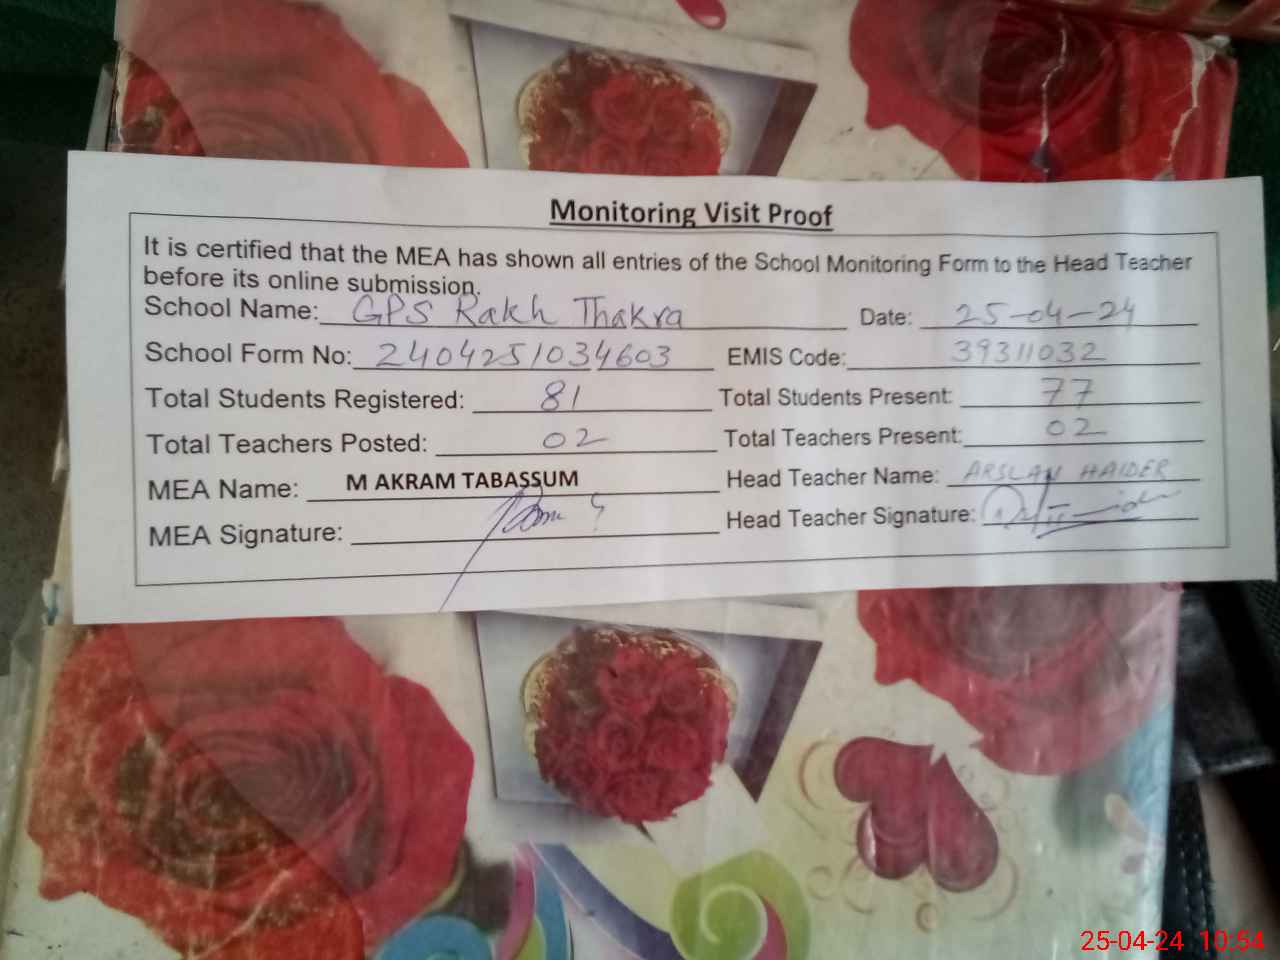 Monitoring Visit Proof
It is certified that the MEA has shown all entries of the School Monitoring Form to the Head Teacher
before its online submission.
School Name: GPS Rakh Thakra Date: 25-04-24
School Form No: 2404251034603 EMIS Code: 39311032
Total Students Registered: 81 Total Students Present: 77
Total Teachers Posted: 02 Total Teachers Present: 02
MEA Name: M AKRAM TABASSUM Head Teacher Name: ARSLAN HAIDER
MEA Signature: Head Teacher Signature:
25-04-24 10:54